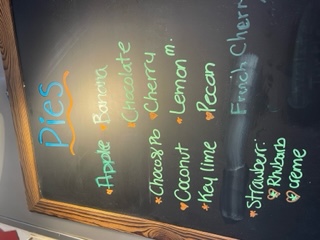 Pies
Apple Banana
Chocolate
Choco&Pb Cherry
Coconut Lemon m.
Key lime Pecan
French Cherry
Strawber.
Rhubarb
creme